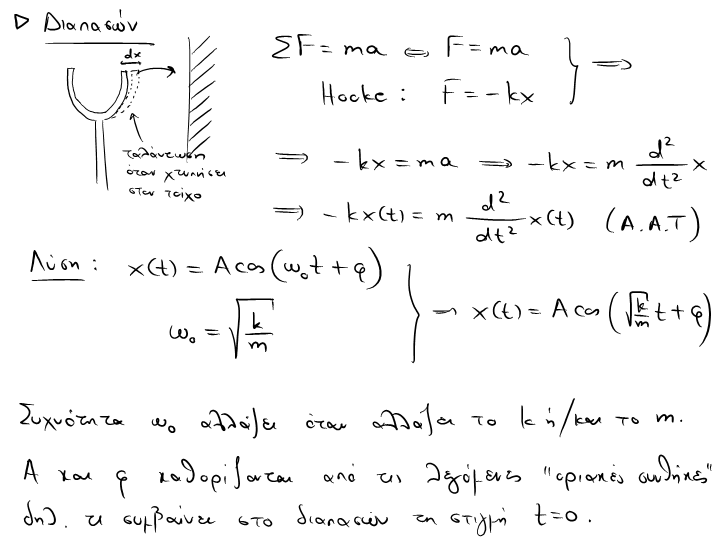 ▷ Διαπασών
dx
ΣF = ma ⇔ F = ma
Hooke : F = -kx
} ⟹
ταλάντωση
όταν χτυπήσει
στον τοίχο
⟹ -kx = ma ⟹ -kx = m d²/dt² x
⟹ -kx(t) = m d²/dt² x(t) (A.A.T)
Λύση : x(t) = A cos(ω₀t + φ)
ω₀ = √(k/m)
} ⟶ x(t) = A cos(√(k/m) t + φ)
Συχνότητα ω₀ αλλάζει όταν αλλάζει το k ή/και το m.
Α και φ καθορίζονται από τις λεγόμενες "οριακές συνθήκες"
δηλ. τι συμβαίνει στο διαπασών τη στιγμή t=0.